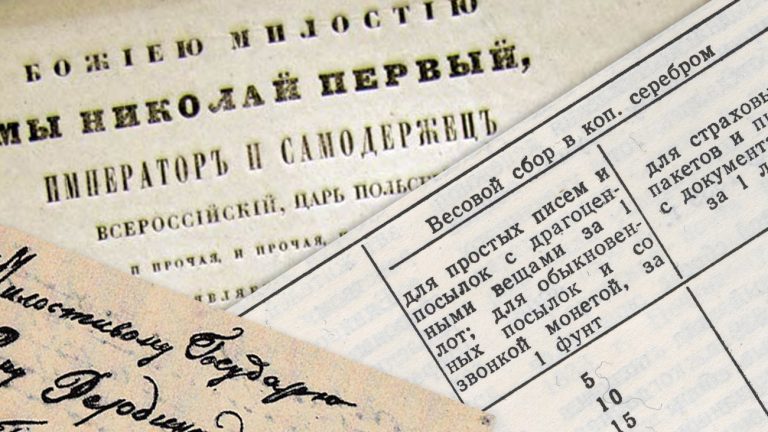 БОЖІЕЮ МИЛОСТІЮ
МЫ НИКОЛАЙ ПЕРВЫЙ,
ИМПЕРАТОРЪ И САМОДЕРЖЕЦЪ
ВСЕРОССІЙСКІЙ, ЦАРЬ
И ПРОЧАЯ, И ПРОЧАЯ,
Весовой сбор в коп. серебром
для простых писем и
посылок с драгоцен-
ными вещами за 1
лот; для обыкновен-
ных посылок и со
звонкой монетой, за
1 фунт
для
пакетов и
с
за 1
5
10
15
Милостивому Государю